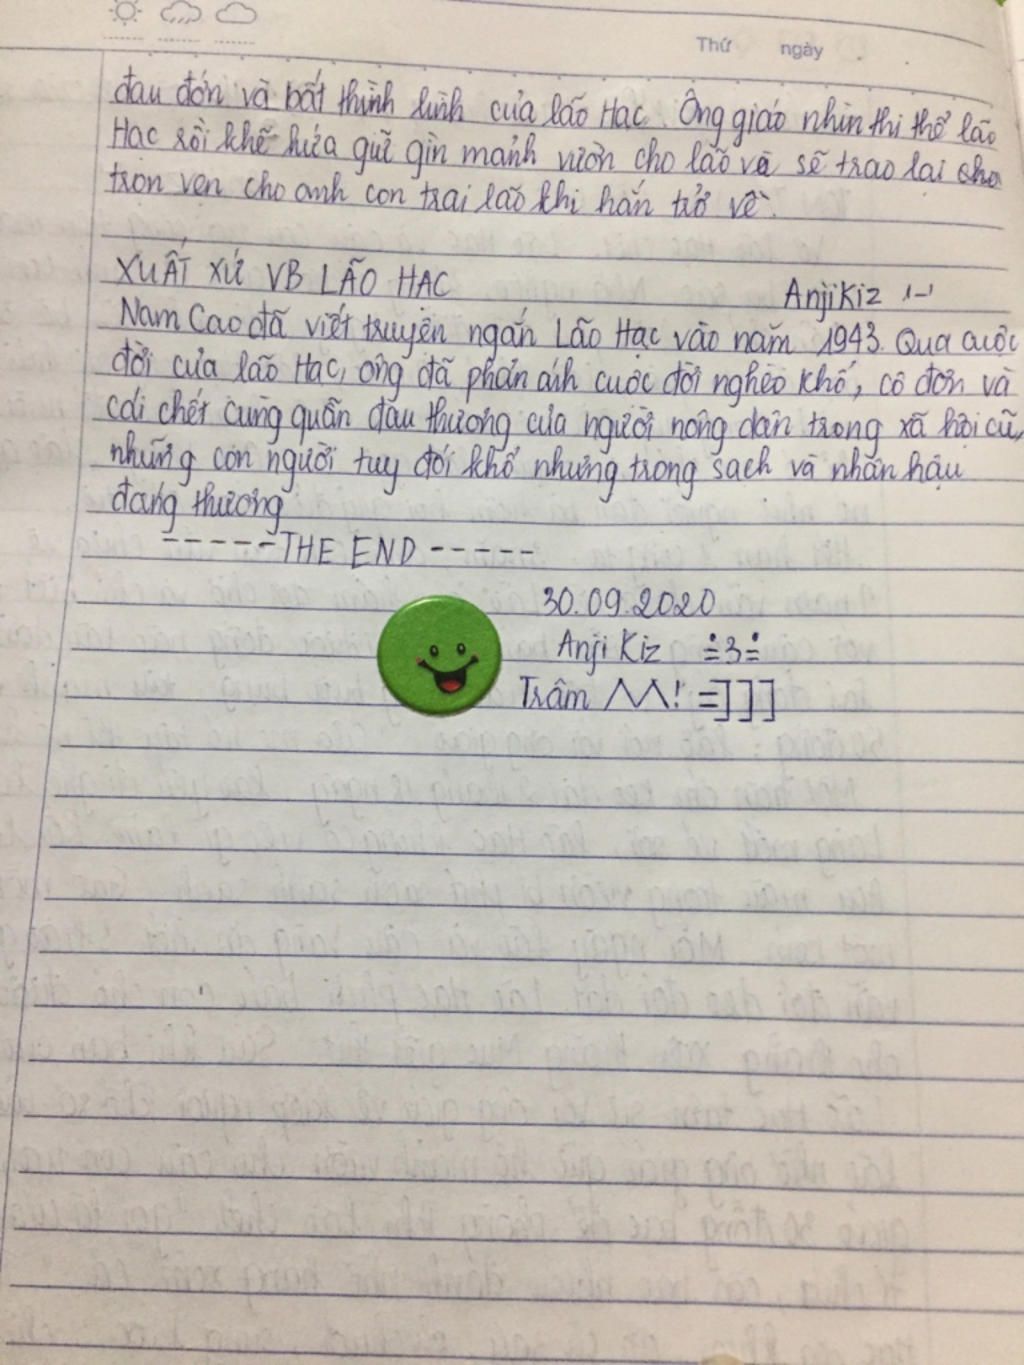 Thứ ngày
đau đớn và bất thình lình của lão Hạc. Ông giáo nhìn thi thể lão
Hạc rồi khẽ hứa giữ gìn mảnh vườn cho lão và sẽ trao lại cho
trọn vẹn cho anh con trai lão khi hắn trở về.
XUẤT XỨ VB LÃO HẠC
AnjiKiz
Nam Cao đã viết truyện ngắn Lão Hạc vào năm 1943. Qua cuộc
đời của lão Hạc, ông đã phản ánh cuộc đời nghèo khổ, cô đơn và
cái chết cùng quẫn đau thương của người nông dân trong xã hội cũ,
những con người tuy đói khổ nhưng trong sạch và nhân hậu
đáng thương
-----THE END-----
30.09.2020
Anji Kiz ÷3÷
Trâm ^^! =]]]